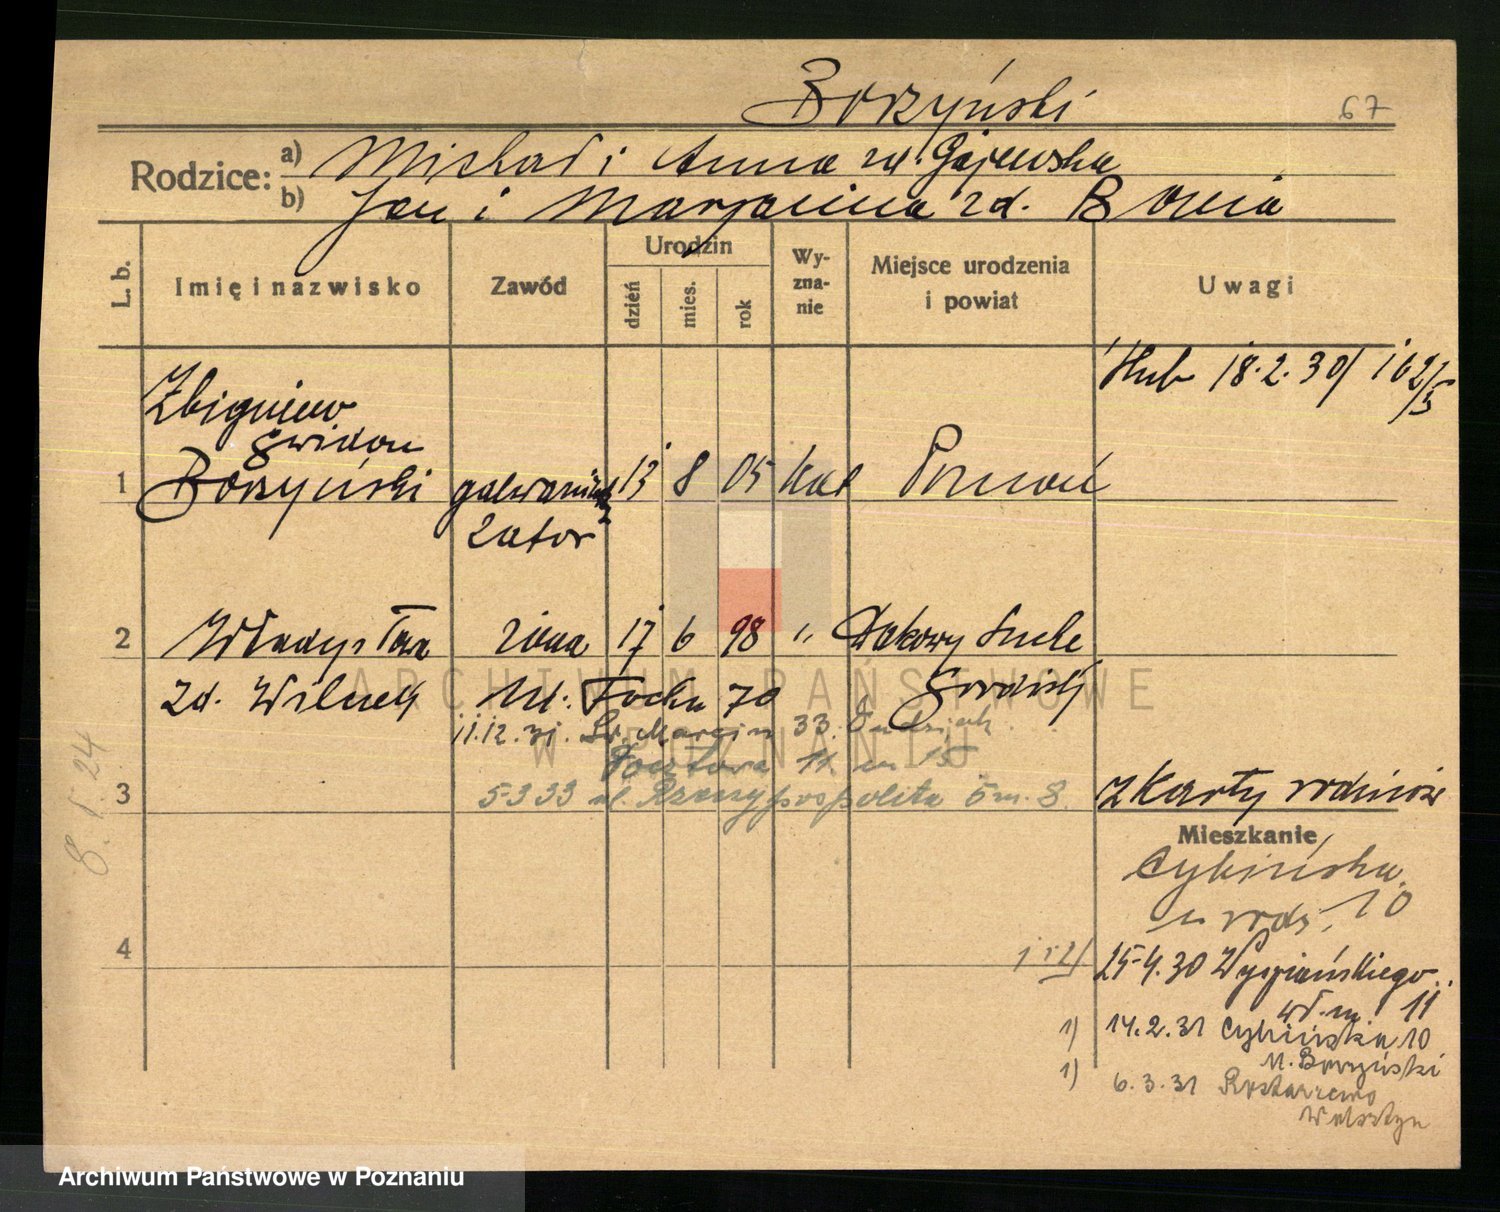 Borzyński 67
Rodzice: a) Michał i Anna zd. Gajewska
b) Jan i Marjanna zd. Bonia
L. b. Imię i nazwisko Zawód Urodzin dzień mies. rok Wyznanie Miejsce urodzenia i powiat Uwagi
ślub 18.2.30/ 162/5
Zbigniew
Gwidon
1 Borzyński galwani 13 8 05 kat Poznań
zator
2 Władysława żona 17 6 98 " Dakowy Suche
zd. Wilczek Ul. Focha 70 Grodzisk
11.12.31. Św. Marcin 33.
Pocztowa 11 m 15
3 5 3 33 pl. Rzeczypospolita 5 m. 8. z Karty rodzinnej
8.1.24
Mieszkanie
Cybińska
u rodz. 10
4 1 i 2/ 25.4.30 Wyspiańskiego
wł. m. 11
1) 14.2.31 Cybińska 10
u. Borzyński
1) 6.3.31 Rostarzewo
Wolsztyn
ARCHIWUM PAŃSTWOWE
W POZNANIU
Archiwum Państwowe w Poznaniu